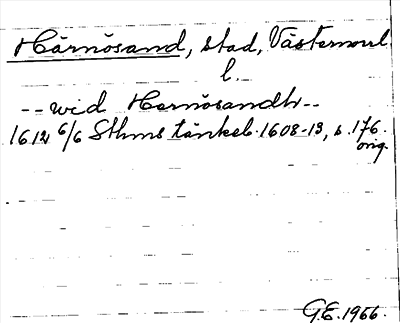 Härnösand, stad, Västernorrl.
l.
-- wid Hernösandh --
1612 6/6 Sthms tänkeb. 1608-13, s. 176.
orig.
G.E. 1966.